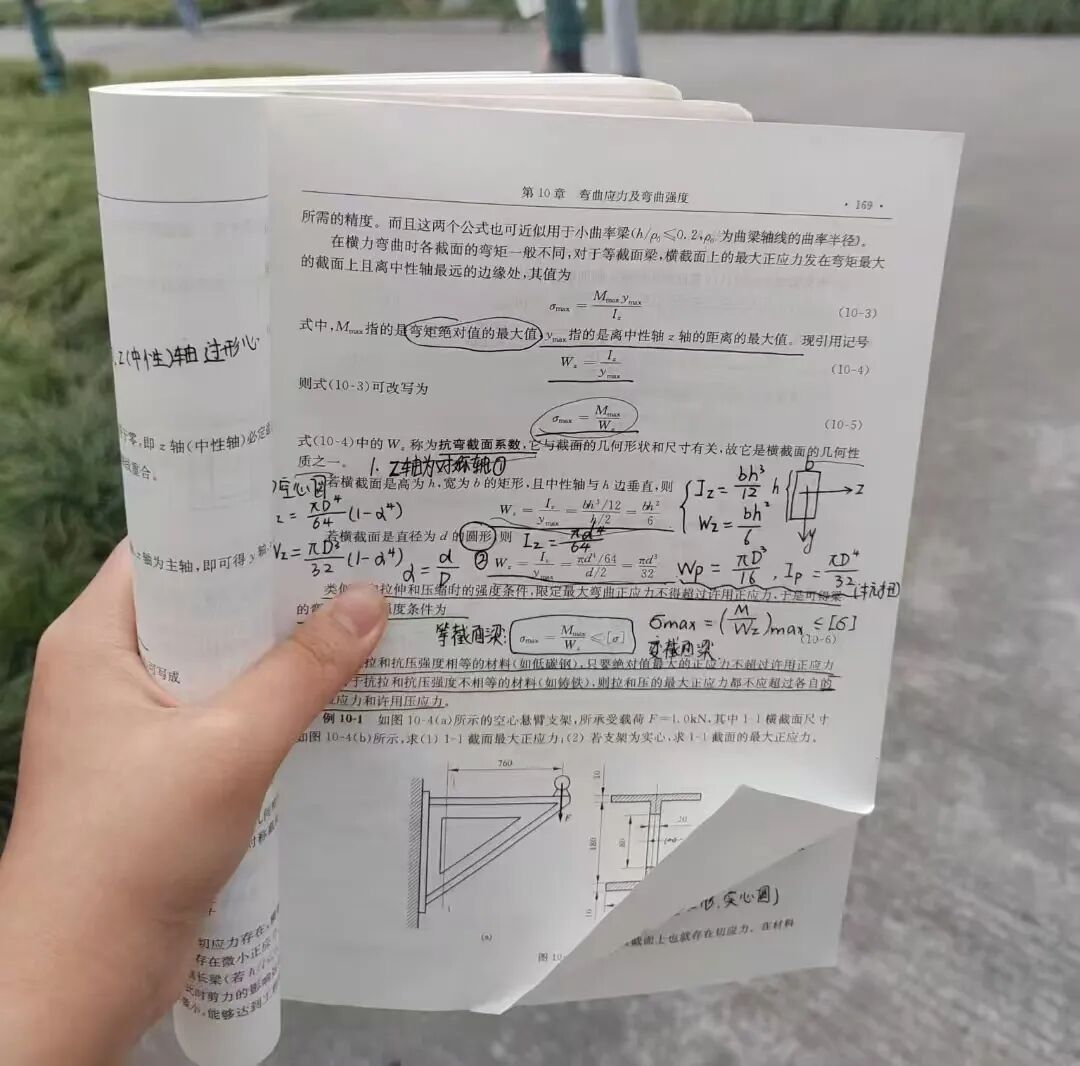 第10章 弯曲应力及弯曲强度
·169·
所需的精度。而且这两个公式也可近似用于小曲率梁(h/ρ₀≤0.2,ρ₀ 为曲梁轴线的曲率半径)。
在横力弯曲时各截面的弯矩一般不同,对于等截面梁,横截面上的最大正应力发在弯矩最大
的截面上且离中性轴最远的边缘处,其值为
σmax = Mmax ymax / Iz (10-3)
式中,Mmax指的是弯矩绝对值的最大值,ymax指的是离中性轴 z 轴的距离的最大值。现引用记号
Wz = Iz / ymax (10-4)
则式(10-3)可改写为
σmax = Mmax / Wz (10-5)
式(10-4)中的 Wz 称为抗弯截面系数,它与截面的几何形状和尺寸有关,故它是横截面的几何性
质之一。 1. Z轴为对称轴①
若横截面是高为 h,宽为 b 的矩形,且中性轴与 h 边垂直,则
Wz = Iz / ymax = (bh³/12) / (h/2) = bh²/6
Iz = bh³/12
Wz = bh²/6
b
h
z
y
若横截面是直径为 d 的圆形,则 Iz = πd⁴/64
② Wz = Iz / ymax = (πd⁴/64) / (d/2) = πd³/32
Wp = πD³/16, Ip = πD⁴/32
类似 拉伸和压缩时的强度条件,限定最大弯曲正应力不得超过许用正应力,于是可得梁
的弯 强度条件为
等截面梁: σmax = Mmax / Wz ≤ [σ]
σmax = (M/Wz)max ≤ [σ]
变截面梁
(10-6)
抗拉和抗压强度相等的材料(如低碳钢),只要绝对值最大的正应力不超过许用正应力
于抗拉和抗压强度不相等的材料(如铸铁),则拉和压的最大正应力都不应超过各自的
应力和许用压应力。
例 10-1 如图 10-4(a)所示的空心悬臂支架,所承受载荷 F=1.0kN,其中 I-I 横截面尺寸
如图 10-4(b)所示,求(1) I-I 截面最大正应力;(2) 若支架为实心,求 I-I 截面的最大正应力。
760
F
(a)
10
180
80
20
10
图 10-
实心圆)
截面上也就存在切应力。在材料
Z(中性)轴 过形心
于零,即 z 轴(中性轴)必定
重合。
空心圆
= πD⁴/64 (1-α⁴)
= πD³/32 (1-α⁴) α = d/D
轴为主轴,即可得 y 轴
可写成
切应力存在,
存在微小正应
长梁(若 h/
此时剪力的影响
小,能够达到工